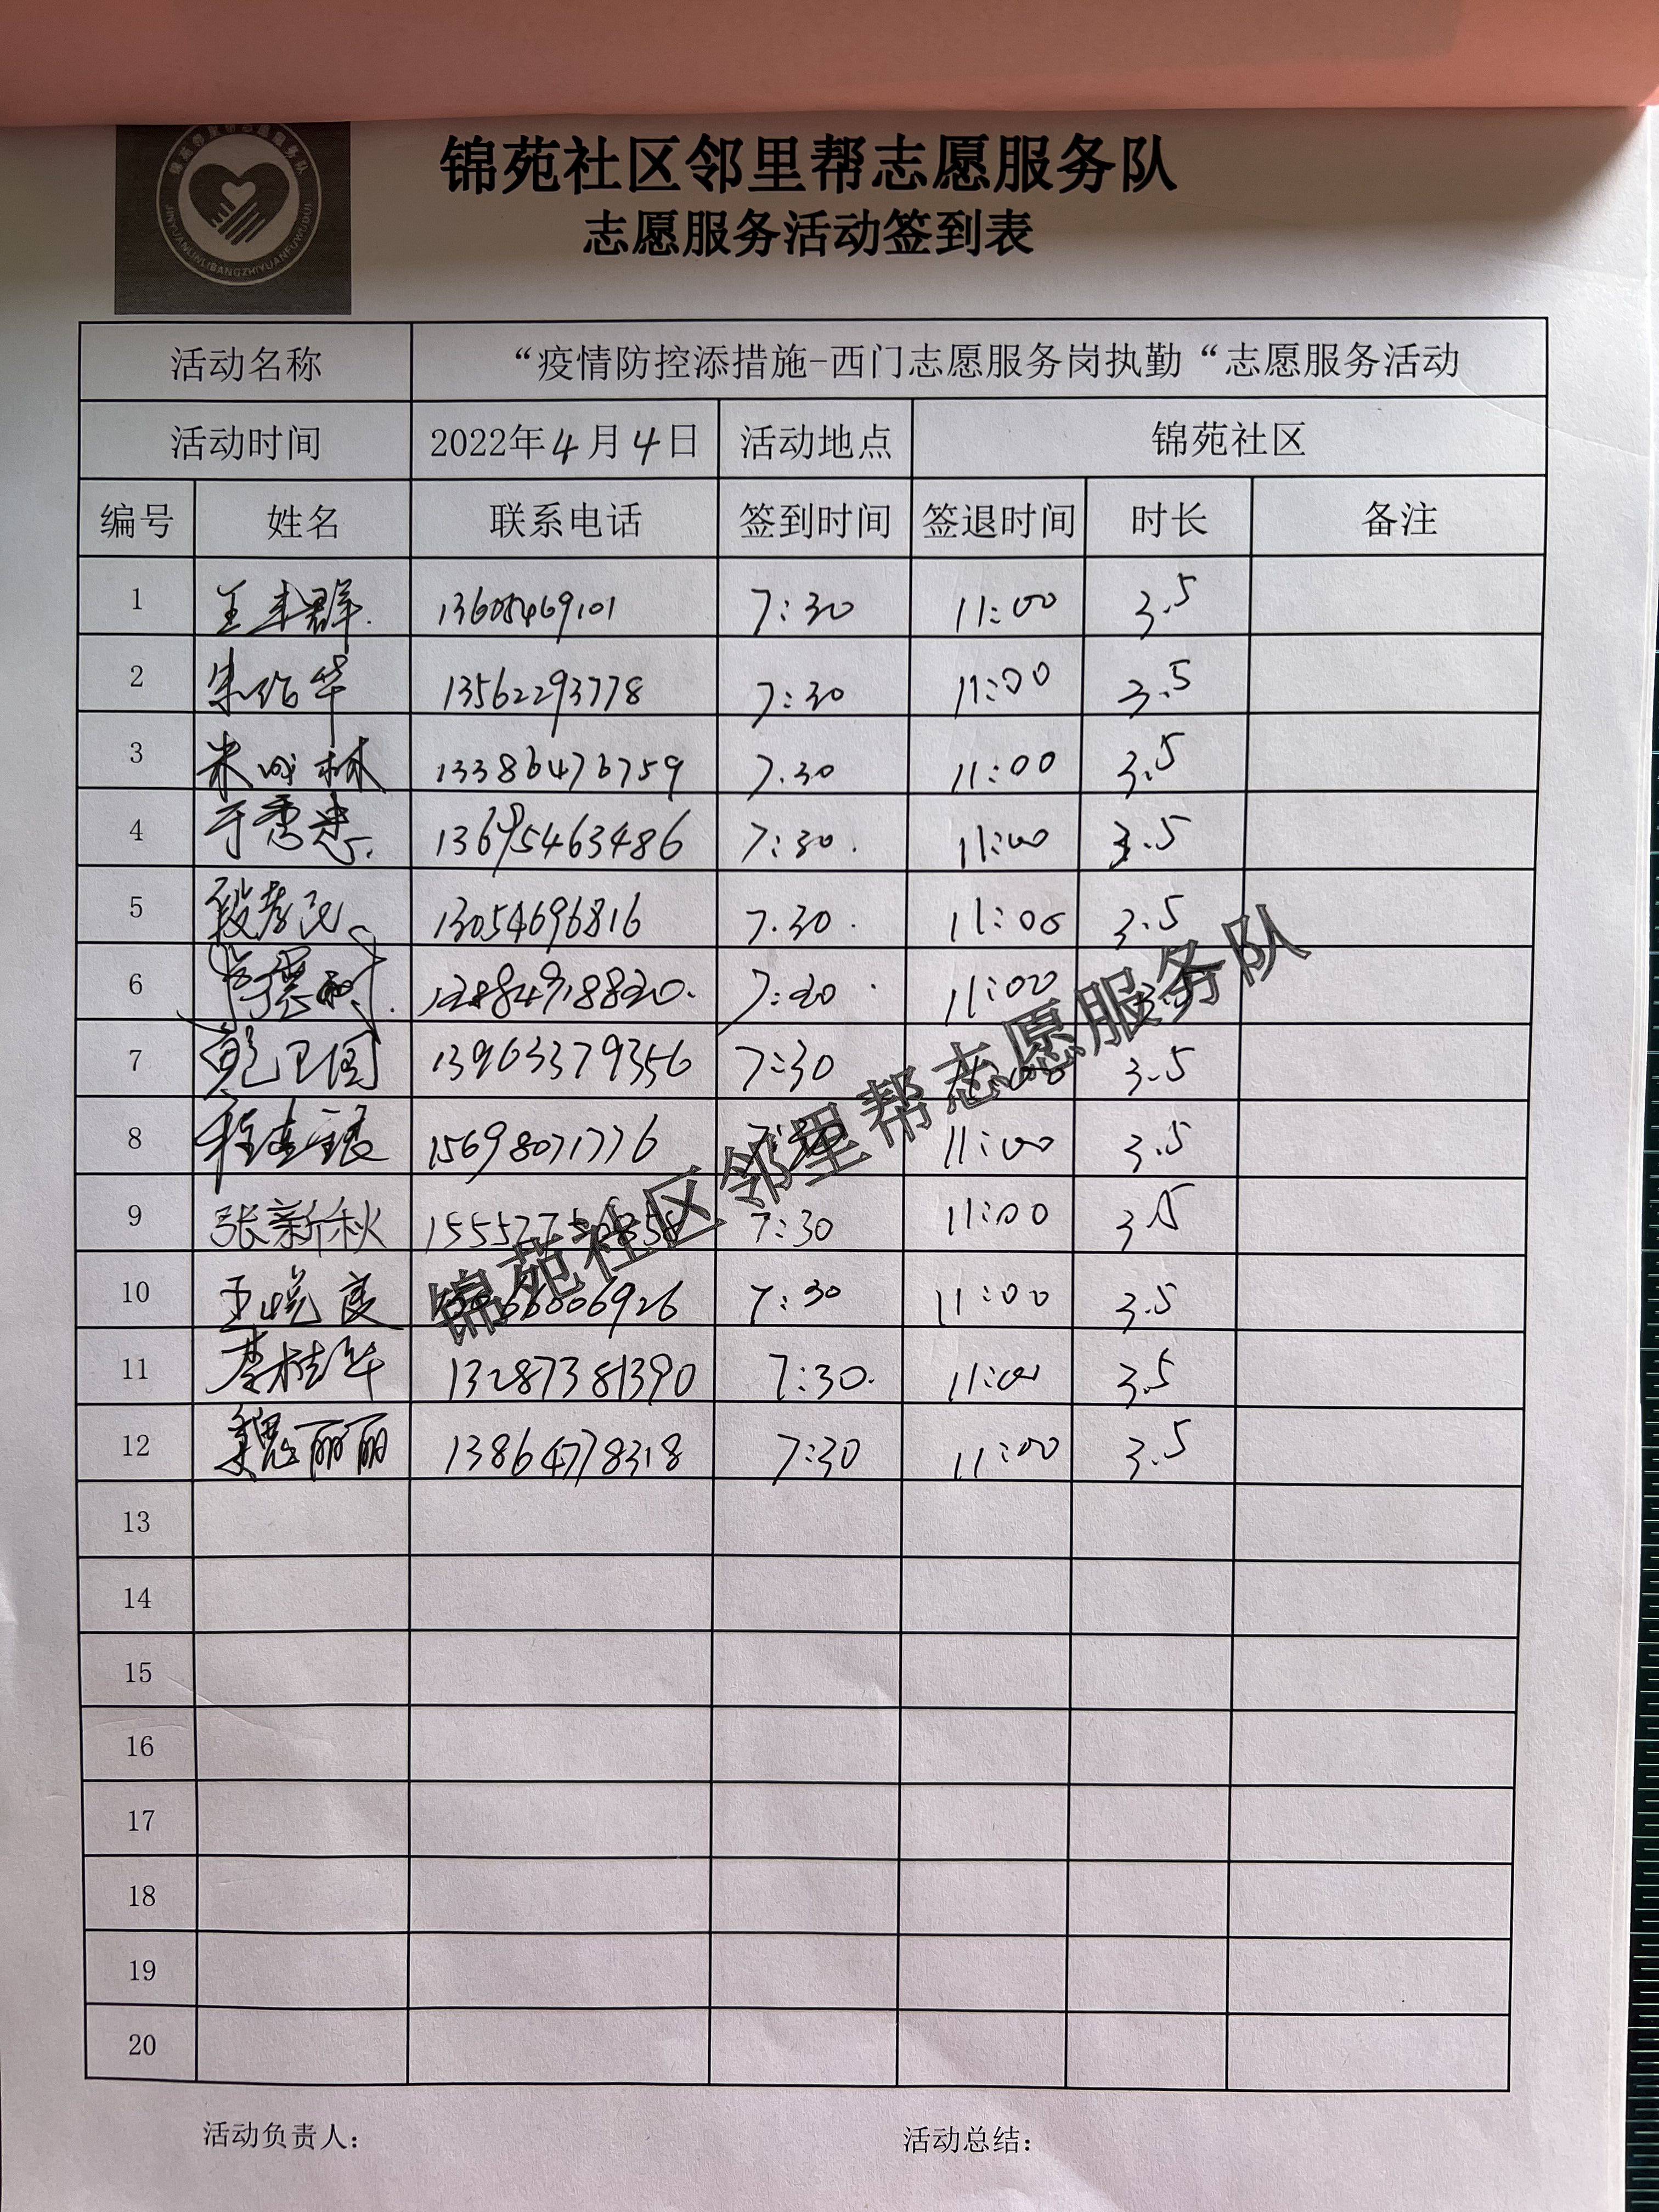 锦苑邻里帮志愿服务队
JINYUANLINLIBANGZHIYUANFUWUDUI
锦苑社区邻里帮志愿服务队
志愿服务活动签到表
活动名称 “疫情防控添措施-西门志愿服务岗执勤“志愿服务活动
活动时间 2022年4月4日 活动地点 锦苑社区
编号 姓名 联系电话 签到时间 签退时间 时长 备注
1 13605469101 7:30 11:00 3.5
2 13562293778 7:30 11:00 3.5
3 米成林 13386476759 7.30 11:00 3.5
4 于秀忠 13695463486 7:30 11:00 3.5
5 段孝民 13054696816 7.30 11:00 3.5
6 11:00 3.5
7 鲍卫国 13963379356 7:30 11:00 3.5
8 15698071776 7:30 11:00 3.5
9 张新秋 7:30 11:00 3.5
10 7:30 11:00 3.5
11 李桂华 13287381390 7:30 11:00 3.5
12 魏丽丽 13864778318 7:30 11:00 3.5
13
14
15
16
17
18
19
20
锦苑社区邻里帮志愿服务队
活动负责人: 活动总结: